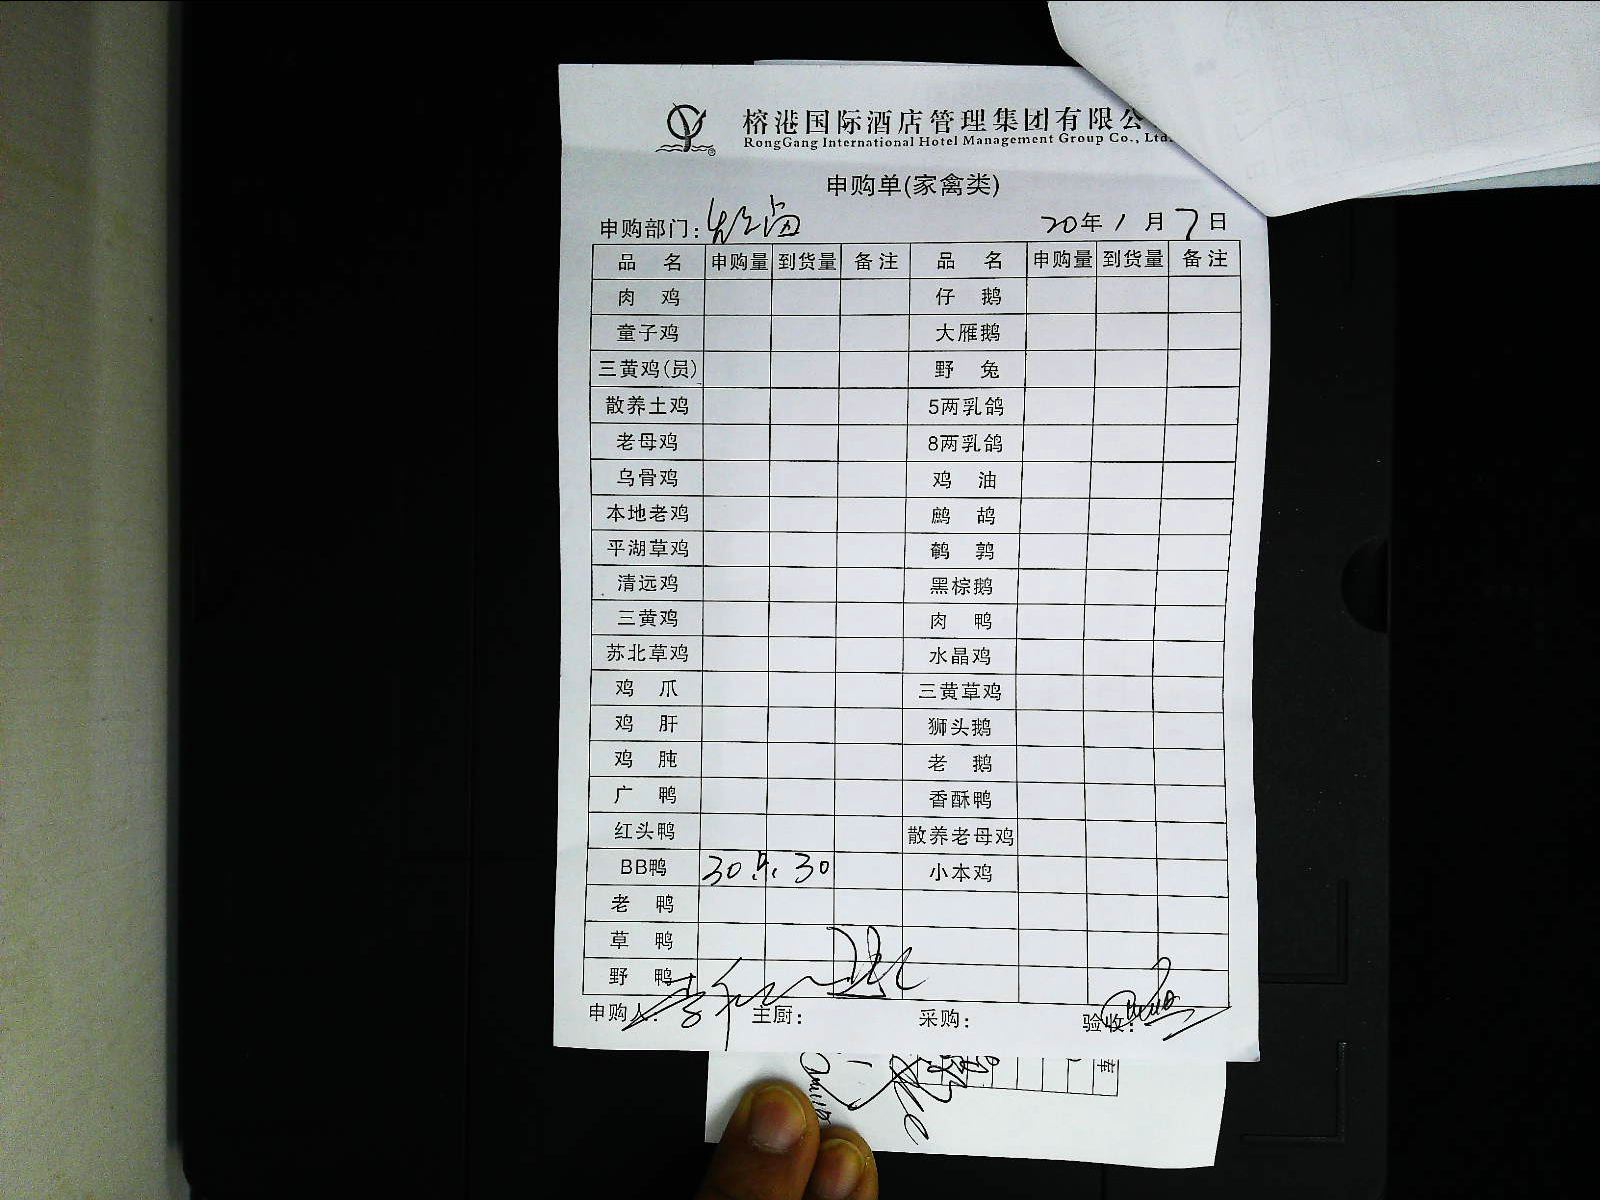 榕港国际酒店管理集团有限公
RongGang International Hotel Management Group Co., Ltd.
申购单(家禽类)
申购部门:
20年1月7日
品名 申购量 到货量 备注 品名 申购量 到货量 备注
肉鸡 仔鹅
童子鸡 大雁鹅
三黄鸡(员) 野兔
散养土鸡 5两乳鸽
老母鸡 8两乳鸽
乌骨鸡 鸡油
本地老鸡 鹧鸪
平湖草鸡 鹌鹑
清远鸡 黑棕鹅
三黄鸡 肉鸭
苏北草鸡 水晶鸡
鸡爪 三黄草鸡
鸡肝 狮头鹅
鸡肫 老鹅
广鸭 香酥鸭
红头鸭 散养老母鸡
BB鸭 30 30 小本鸡
老鸭
草鸭
野鸭
申购人: 主厨: 采购: 验收: